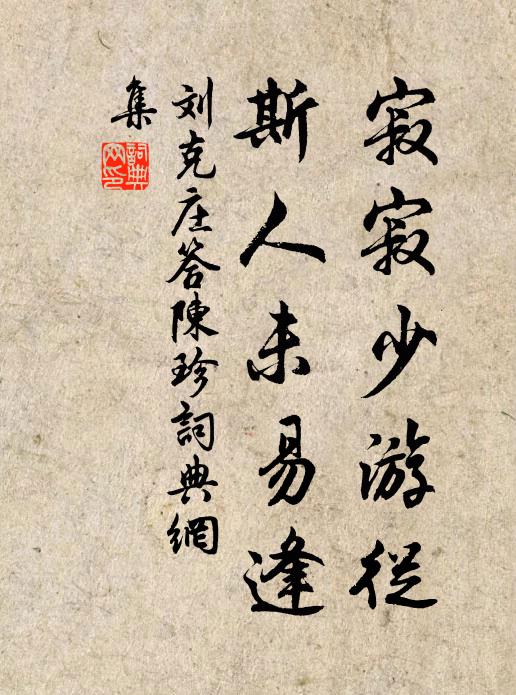 寂寂少游從
斯人未易逢
刘克庄答陳珍詞典網
集
詞典网印